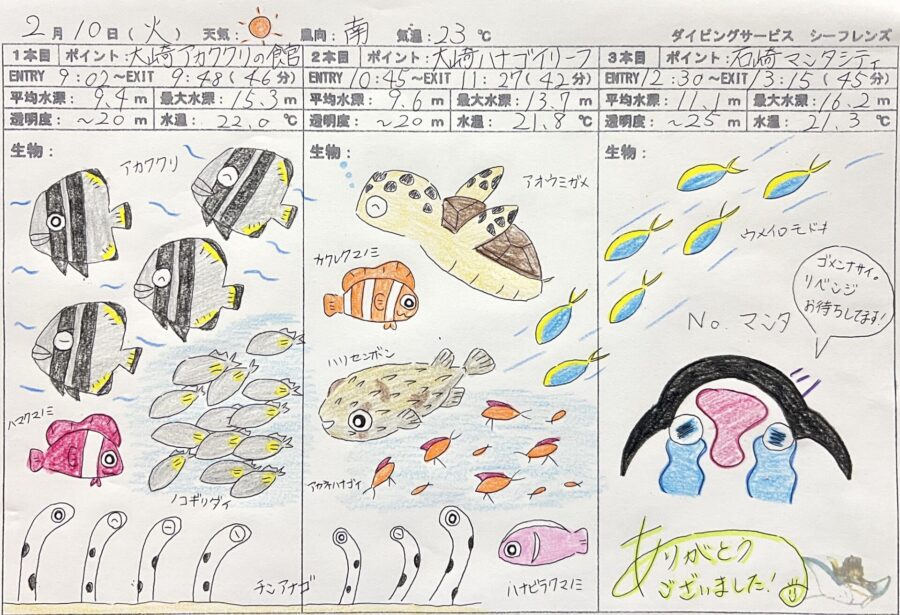 2月10日(火) 天気: 風向:南 気温:23℃ ダイビングサービス シーフレンズ
1本目 ポイント:大崎アカククリの館
ENTRY 9:02~EXIT 9:48(46分)
平均水深: 9.4m 最大水深: 15.3m
透明度: ~20m 水温: 22.0℃
生物:
アカククリ
ハマクマノミ
ノコギリダイ
チンアナゴ
2本目 ポイント:大崎ハナゴイリーフ
ENTRY 10:45~EXIT 11:27(42分)
平均水深: 9.6m 最大水深: 13.7m
透明度: ~20m 水温: 21.8℃
生物:
アオウミガメ
カクレクマノミ
ハリセンボン
アカネハナゴイ
ハナビラクマノミ
3本目 ポイント:石崎マンタシティ
ENTRY 12:30~EXIT 13:15(45分)
平均水深: 11.1m 最大水深: 16.2m
透明度: ~25m 水温: 21.3℃
生物:
ウメイロモドキ
No. マンタ
ゴメンナサイ。
リベンジ
お待ちしてます!
ありがとう
ございました!